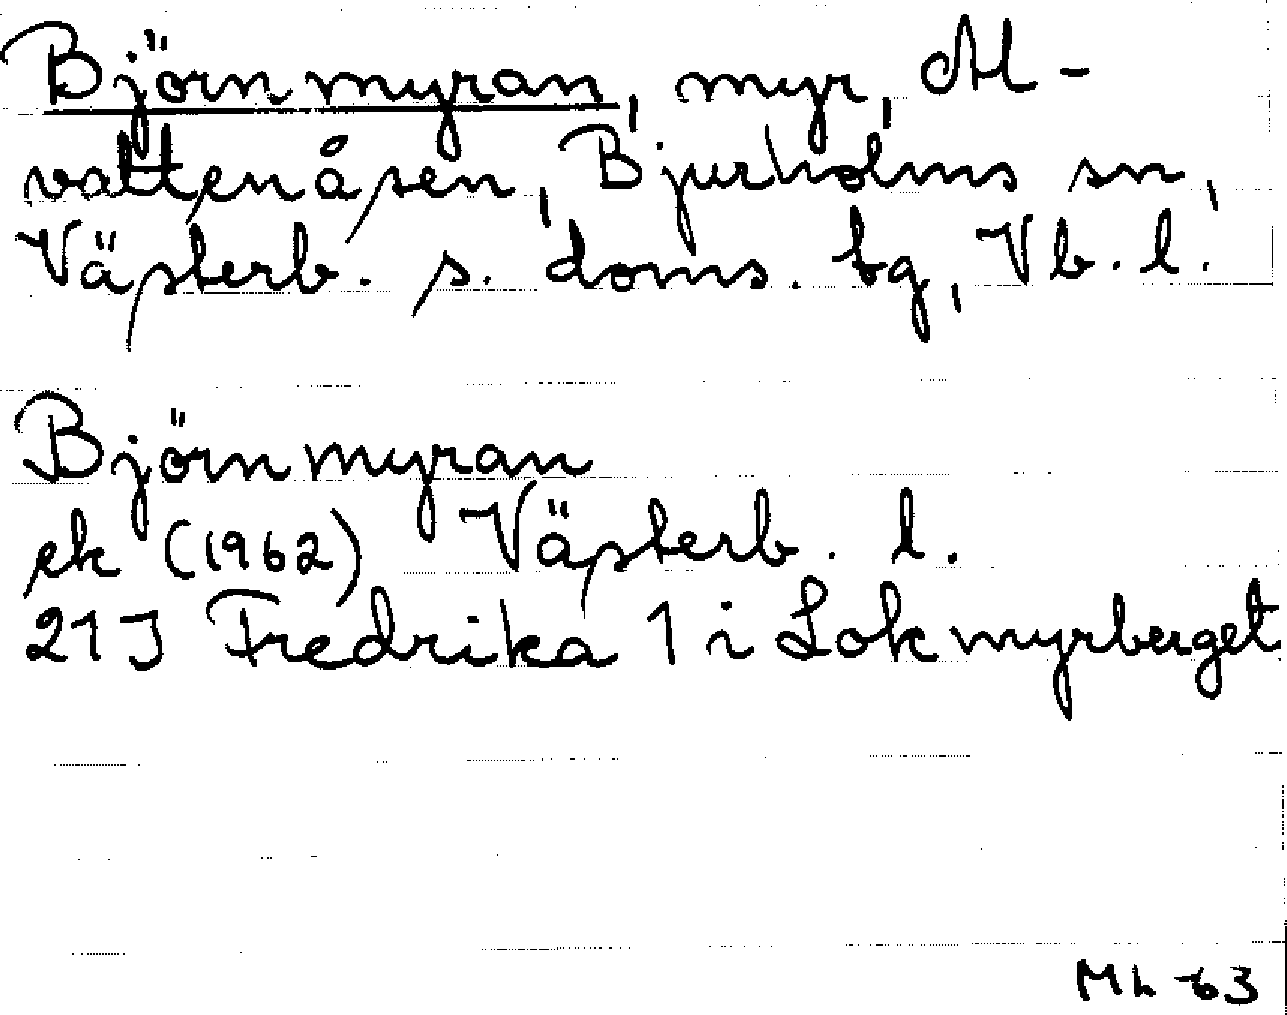 Björnmyran, myr, Al-
vattenåsen, Bjurholms sn,
Västerb. s. doms. tg, Vb. l.
Björnmyran
ek (1962) Västerb. l.
21J Fredrika 1 i Lokmyrberget
Mh 63